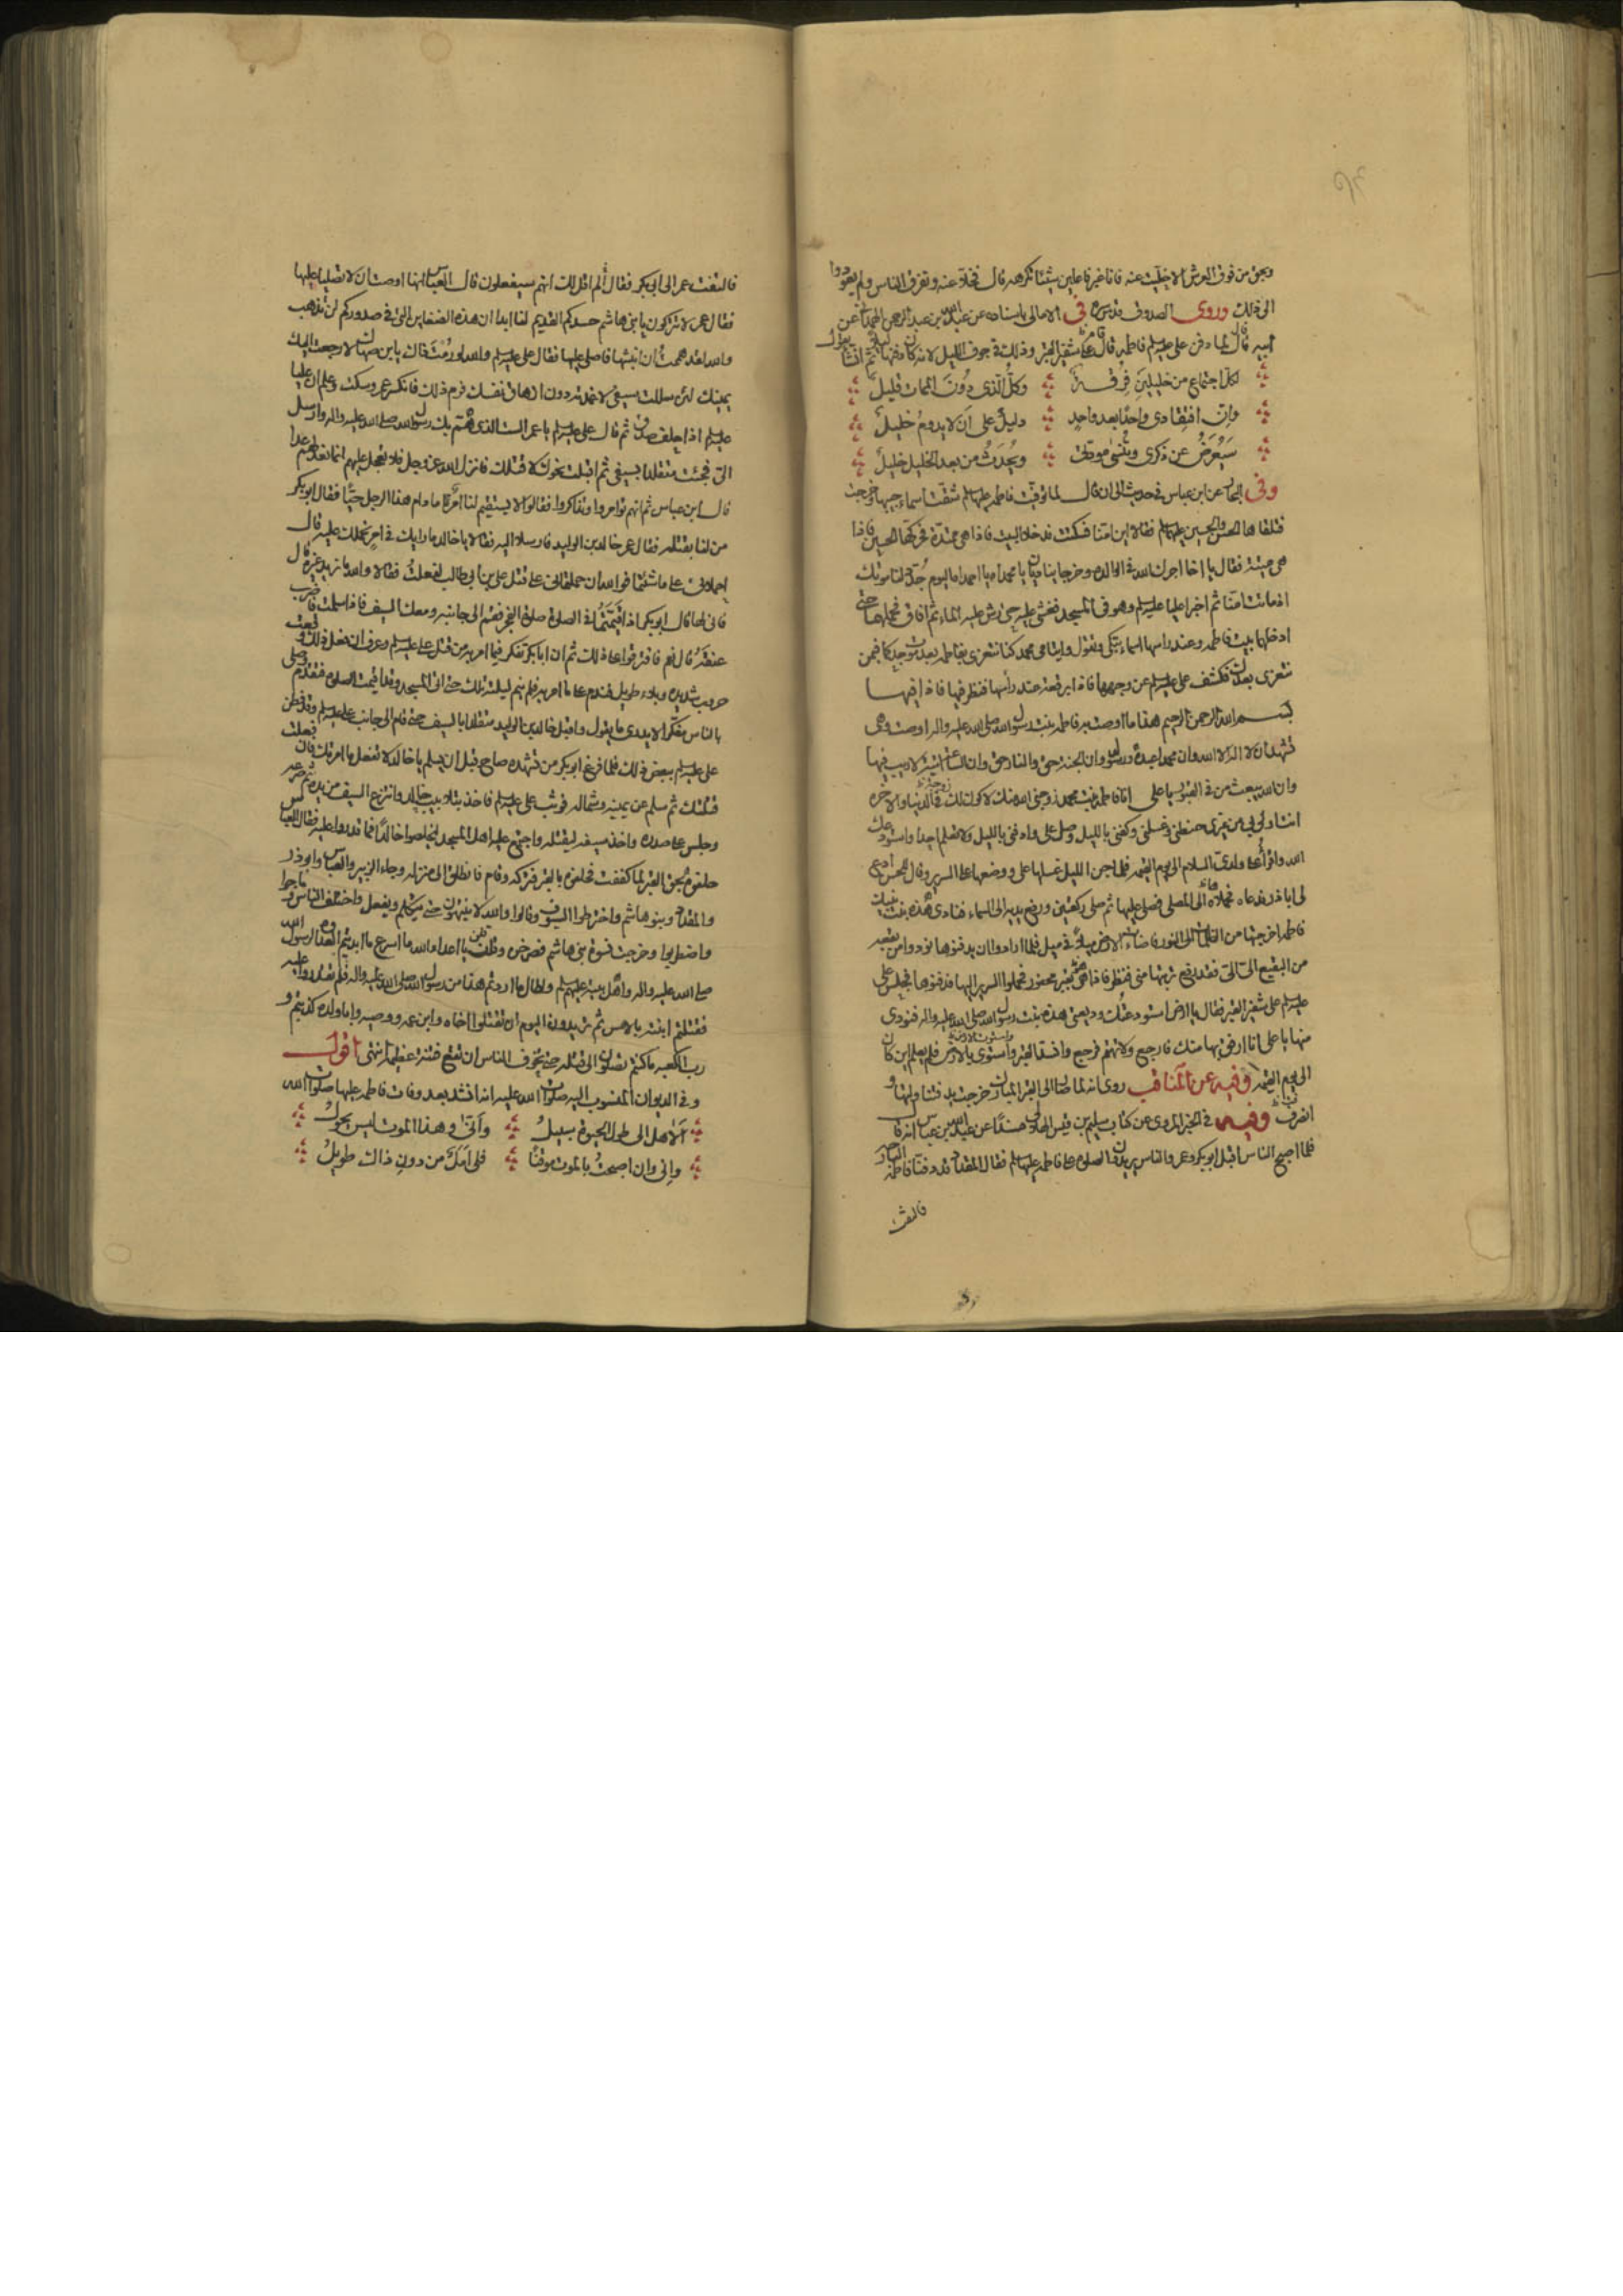 وبحق من فوق العرش الا خليت عنه فانا غير فاعلين شيئا تكرهه قال فخلا عنه وتفرق الناس ولم يعودوا
الى ذلك وروى الصدوق قدس سره فى الامالى باسناده عن عبد الله بن عبد الرحمن الهمدانى عن
ابيه قال لما دفن على عليه السلام فاطمه قام على شفير القبر وذلك فى جوف الليل لانه كان دفنها ليلا ثم انشا يقول
لكل اجتماع من خليلين فرقة وكل الذى دون الممات قليل
وان افتقادى واحدا بعد واحد دليل على ان لا يدوم خليل
سيعرض عن ذكرى وتنسى مودتى ويحدث من بعد الخليل خليل
وفى البحار عن ابن عباس فى حديث الى ان قال لما توفيت فاطمه عليها السلام شقت اسماء جيبها وخرجت
فتلقاها الحسن والحسين عليهما السلام فقالا اين امنا فسكتت فدخلا البيت فاذا هى ممتدة فحركها الحسين فاذا
هى ميتة فقال يا اخا اجرك الله فى الوالده وخرجا يناديان يا محمداه يا احمداه اليوم جدد لنا موتك
اذ ماتت امنا ثم اخبرا عليا عليه السلام وهو فى المسجد فغشى عليه حتى رش عليه الماء ثم افاق فحملهما حتى
ادخلهما بيت فاطمه وعند راسها اسماء تبكى وتقول وايتامى محمد كنا نتعزى بفاطمه بعد موت جدكما فبمن
نتعزى بعدك فكشف على عليه السلام عن وجهها فاذا برقعة عند رأسها فنظر فيها فاذا فيها
بسم الله الرحمن الرحيم هذا ما اوصت به فاطمه بنت رسول الله صلى الله عليه واله اوصت وهى
تشهد ان لا اله الا الله وان محمدا عبده ورسوله وان الجنة حق والنار حق وان الساعة اتية لا ريب فيها
وان الله يبعث من فى القبور يا على انا فاطمه بنت محمد زوجنى الله منك لاكون لك فى الدنيا والاخره
انت اولى بى من غيرى حنطنى وغسلنى وكفنى بالليل وصل على وادفنى بالليل ولا تعلم احدا واستودعك
الله واقرأ على ولدى السلام الى يوم القيمه فلما جن الليل غسلها على ووضعها على السرير وقال للحسن ادع
لى اباذر فدعاه فحملاه الى المصلى فصلى عليها ثم صلى ركعتين ورفع يديه الى السماء فنادى هذه بنت نبيك
فاطمه اخرجتها من الظلمات الى النور فاضاءت الارض ميلا فى ميل فلما ارادوا ان يدفنوها نودوا من بقعه
من البقيع الى الى فقد رفع تربتها منى فنظر فاذا هى بقبر محفور فحملوا السرير اليها فدفنوها فجلس على
عليه السلام على شفير القبر فقال يا ارض استودعتك وديعتى هذه بنت رسول الله صلى الله عليه واله فنودى
منها يا على انا ارفق بها منك فارجع ولا تهتم فرجع وانسد القبر واستوى بالارض فلم يعلم اين كان
الى يوم القيمه وفيه عن المناقب روى انه لما صار الى القبر المبارك خرجت يد فتناولتها و
انصرف وفيه فى الخبر المروى عن كتاب سليم بن قيس الهلالى مسندا عن عبد الله بن عباس انه قال
فلما اصبح الناس اقبل ابوبكر وعمر والناس يريدون الصلوة على فاطمه عليها السلام فقال المقداد قد دفنا فاطمه البارحه
فالتفت
فالتفت عمر الى ابى بكر فقال ألم اقل لك انهم سيفعلون قال العباس انها اوصت ان لا تصليا عليها
فقال عمر لا تتركون يا بنى هاشم حسدكم القديم لنا ابدا ان هذه الضغاين التى فى صدوركم لن تذهب
والله لقد هممت ان انبشها فاصلى عليها فقال على عليه السلام والله لو رمت ذاك يا بن صهاك لارجعت اليك
يمينك لئن سللت سيفى لا غمدته دون ازهاق نفسك فرم ذلك فانكسر عمر وسكت وعلم ان عليا
عليه السلام اذا حلف صدق ثم قال على عليه السلام يا عمر الست الذى هم بك رسول الله صلى الله عليه واله وارسل
الى فجئت متقلدا بسيفى ثم اقبلت نحوك لاقتلك فانزل الله عز وجل فلا تعجل عليهم انما نعد لهم عدا
قال ابن عباس ثم انهم توامروا وتذاكروا فقالوا لا يستقيم لنا امر ما دام هذا الرجل حيا فقال ابوبكر
من لنا بقتله فقال عمر خالد بن الوليد فارسلا اليه فقالا يا خالد ما رايك فى امر نحملك عليه قال
احملانى على ما شئتما فوالله ان حملتمانى على قتل على بن ابى طالب لفعلت فقالا والله ما نريد غيره قال
فانى لها قال ابوبكر اذا قمتما فى الصلوة صلوة الفجر فقم الى جانبه ومعك السيف فاذا سلمت فاضرب
عنقه قال نعم فافترقوا على ذلك ثم ان ابا بكر تفكر فيما امر به من قتل على عليه السلام وعرف ان فعل ذلك وقعت
حروب شديده وبلاء طويل فندم على ما امر به فلم ينم ليلته تلك حتى اتى المسجد وقد اقيمت الصلوه فتقدم وصلى
بالناس مفكرا لا يدرى ما يقول واقبل خالد بن الوليد متقلدا بالسيف حتى قام الى جانب على عليه السلام وقد فطن
على عليه السلام ببعض ذلك فلما فرغ ابوبكر من تشهده صاح قبل ان يسلم يا خالد لا تفعل ما امرتك فان فعلت
قتلتك ثم سلم عن يمينه وشماله فوثب على عليه السلام فاخذ بتلابيب خالد وانتزع السيف من يده ثم صرعه
وجلس على صدره واخذ سيفه ليقتله واجتمع عليه اهل المسجد ليخلصوا خالدا فما قدروا عليه فقال العباس
حلفوه بحق القبر لما كففت فحلفوه بالقبر فتركه وقام فانطلق الى منزله وجاء الزبير والعباس وابوذر
والمقداد وبنو هاشم واخترطوا السيوف وقالوا والله لا ينتهون حتى يتكلم ويفعل واختلف الناس وماجوا
واضطربوا وخرجت نسوة بنى هاشم فصرخن وقلن يا اعداء الله ما اسرع ما ابديتم العداوة لرسول الله
صلى الله عليه واله واهل بيته عليهم السلام ولطال ما اردتم هذا من رسول الله صلى الله عليه واله فلم تقدروا عليه
فقتلتم ابنته بالامس ثم تريدون اليوم ان تقتلوا اخاه وابن عمه ووصيه وابا ولده كذبتم و
رب الكعبه ما كنتم تصلون الى قتله حتى تخوف الناس ان تقع فتنة عظيمة انتهى اقول
وفى الديوان المنسوب اليه صلوات الله عليه انه انشد بعد وفات فاطمه عليها صلوات الله
الا هل الى طول الحيوة سبيل وأنى وهذا الموت ليس يحول
وانى وان اصبحت بالموت موقنا فلى امل من دون ذاك طويل